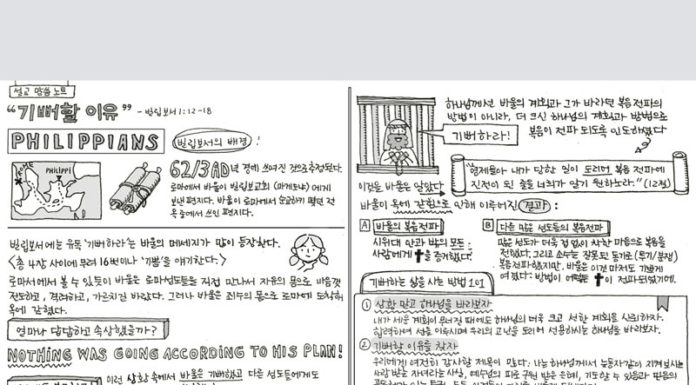 설교 말씀 노트
"기뻐할 이유" - 빌립보서 1:12-18
PHILIPPIANS
빌립보서의 배경:
PHILIPPI
62/3 AD년 경에 쓰여진 것으로 추정된다.
로마에서 바울이 빌립보교회 (마게도냐) 에게
보낸 편지다. 바울이 로마에서 순교하기 몇년 전
옥중에서 쓰인 편지다.
빌립보서에는 유독 '기뻐하라'는 바울의 메세지가 많이 등장한다.
<총 4장 사이에 무려 16번이나 '기쁨'을 얘기한다.>
로마서에서 볼 수 있듯이 바울은 로마성도들을 직접 만나서 자유의 몸으로 마음껏
전도하고, 격려하고, 가르치길 바랐다. 그러나 바울은 죄수의 몸으로 로마에 도착하여
옥에 갇혔다.
얼마나 답답하고 속상했을까?
NOTHING WAS GOING ACCORDING TO HIS PLAN!
이런 상황 속에서 바울은 기뻐하였고 다른 성도들에게도
하나님께선 바울의 계획과 그가 바라던 복음전파의
방법이 아니라, 더 크신 하나님의 계획과 방법으로
복음이 전파 되도록 인도하셨다
기뻐하라!
"형제들아 내가 당한 일이 도리어 복음 전파에
진전이 된 줄을 너희가 알기 원하노라." (12절)
이것을 바울은 알았다
바울이 옥에 갇힘으로 인해 이루어진 결과:
A 바울의 복음전파
시위대 안과 밖의 모든
사람에게 를 증거했다.
B 다른 많은 성도들의 복음전파
많은 성도가 더욱 겁 없이 착한 마음으로 복음을
전했다. 그리고 소수는 잘못된 동기로 (투기/분쟁)
복음전파했지만, 바울은 이것 마저도 기뻐하
였다. 방법이 어찌됐든 이 전파되었기에.
기뻐하는 삶을 사는 방법 101
① 상황 말고 하나님을 바라보자
내가 세운 계획이 무너질 때에도 하나님의 더욱 크고 선한 계획을 신뢰하자.
합력하여 선을 이루시며 우리의 고난을 도리어 선용하시는 하나님을 바라보자.
② 기뻐할 이유를 찾자
우리에게는 여전히 감사할 제목이 많다. 나는 하나님께서 눈동자같이 지켜보시는